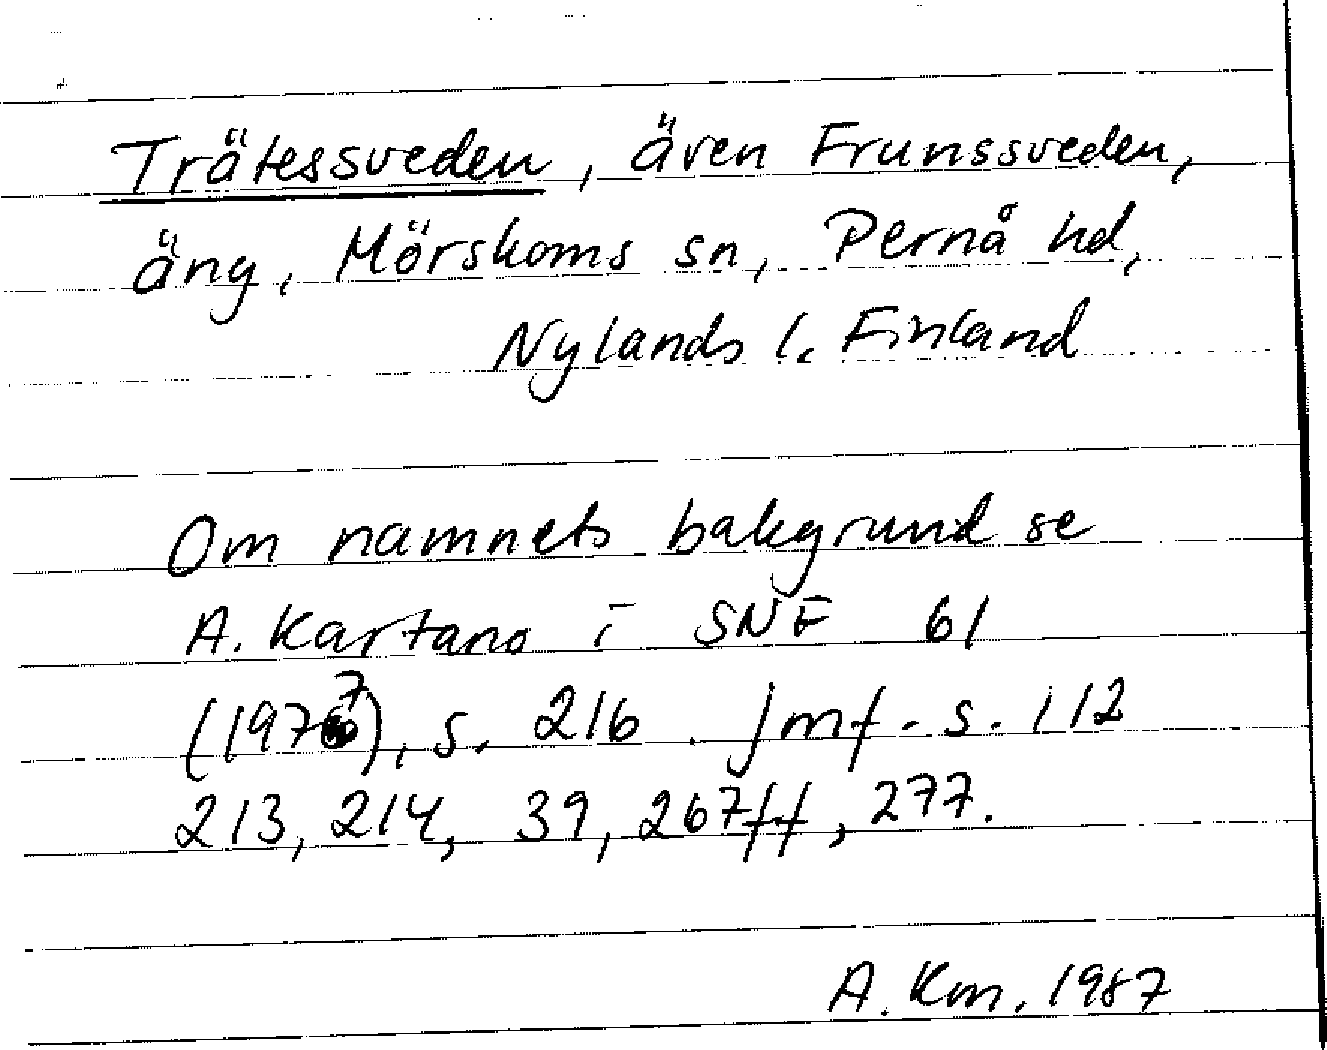 Trätessveden, även Frunssveden,
äng, Mörskoms sn, Pernå hd,
Nylands l. Finland
Om namnets bakgrund se
A. Kartano i SNF 61
(1977), s. 216. Jmf. s. 112
213, 214, 39, 267ff, 277.
A. Km. 1987